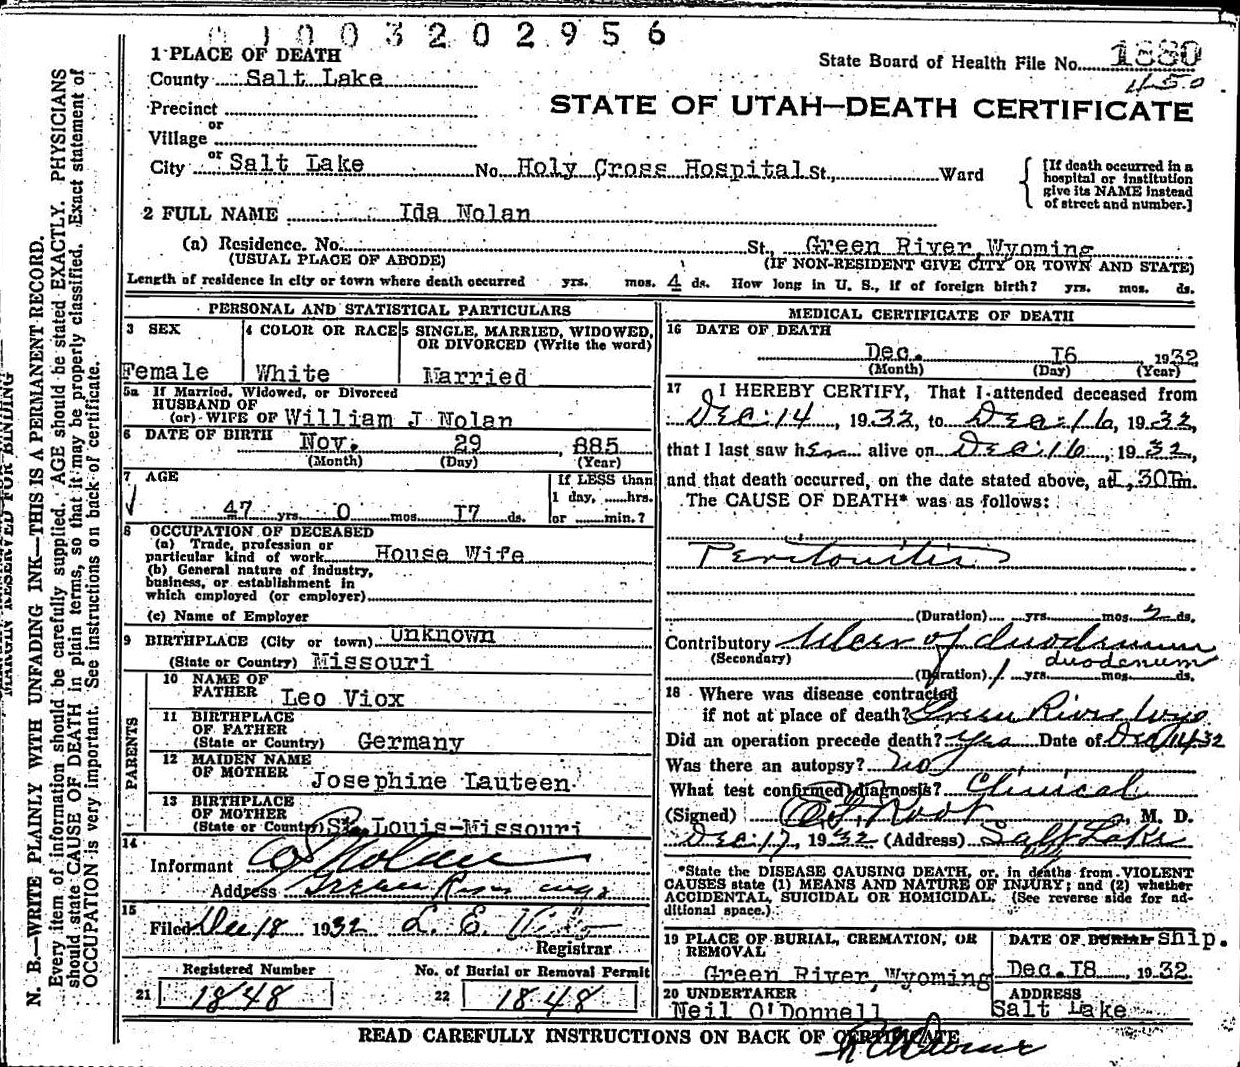 003202956
1 PLACE OF DEATH
State Board of Health File No. 1880
County Salt Lake
450
Precinct
STATE OF UTAH—DEATH CERTIFICATE
or
Village
or
City Salt Lake No. Holy Cross Hospital St., Ward
[If death occurred in a hospital or institution give its NAME instead of street and number.]
2 FULL NAME Ida Nolan
(a) Residence. No. St., Green River, Wyoming
(USUAL PLACE OF ABODE) (IF NON-RESIDENT GIVE CITY OR TOWN AND STATE)
Length of residence in city or town where death occurred yrs. mos. 4 ds. How long in U. S., if of foreign birth? yrs. mos. ds.
PERSONAL AND STATISTICAL PARTICULARS
3 SEX
Female
4 COLOR OR RACE
White
5 SINGLE, MARRIED, WIDOWED,
OR DIVORCED (Write the word)
Married
5a If Married, Widowed, or Divorced
HUSBAND OF
(or) WIFE OF William J Nolan
6 DATE OF BIRTH Nov. 29, 885
(Month) (Day) (Year)
7 AGE
47 yrs. 0 mos. 17 ds.
If LESS than
1 day, hrs.
or min.?
8 OCCUPATION OF DECEASED
(a) Trade, profession or
particular kind of work House Wife
(b) General nature of industry,
business, or establishment in
which employed (or employer)
(c) Name of Employer
9 BIRTHPLACE (City or town) Unknown
(State or Country) Missouri
PARENTS
10 NAME OF
FATHER Leo Viox
11 BIRTHPLACE
OF FATHER
(State or Country) Germany
12 MAIDEN NAME
OF MOTHER Josephine Lauteen
13 BIRTHPLACE
OF MOTHER
(State or Country) St. Louis-Missouri
14
Informant Nolan
Address Green River Wyo
15
Filed Dec 18 1932 L. E.
Registrar
Registered Number
21 1848
No. of Burial or Removal Permit
22 1848
MEDICAL CERTIFICATE OF DEATH
16 DATE OF DEATH
Dec. 16 1932
(Month) (Day) (Year)
17 I HEREBY CERTIFY, That I attended deceased from
Dec. 14, 1932, to Dec. 16, 1932,
that I last saw her alive on Dec. 16, 1932,
and that death occurred, on the date stated above, at 1,30Pm.
The CAUSE OF DEATH* was as follows:
Peritonitis
(Duration) yrs. mos. 2 ds.
Contributory Ulcer of duodenum
(Secondary) duodenum
(Duration) 1 yrs. mos. ds.
18 Where was disease contracted
if not at place of death? Green River Wyo
Did an operation precede death? yes Date of Dec 14 32
Was there an autopsy? no
What test confirmed diagnosis? Clinical
(Signed) Root, M. D.
Dec. 17, 1932 (Address) Salt Lake
*State the DISEASE CAUSING DEATH, or, in deaths from VIOLENT
CAUSES state (1) MEANS AND NATURE OF INJURY; and (2) whether
ACCIDENTAL, SUICIDAL OR HOMICIDAL. (See reverse side for ad-
ditional space.)
19 PLACE OF BURIAL, CREMATION, OR
REMOVAL
Green River, Wyoming
DATE OF BURIAL Ship.
Dec. 18, 1932.
20 UNDERTAKER
Neil O'Donnell
ADDRESS
Salt Lake
READ CAREFULLY INSTRUCTIONS ON BACK OF CERTIFICATE
MARGIN RESERVED FOR BINDING
N. B.—WRITE PLAINLY WITH UNFADING INK—THIS IS A PERMANENT RECORD.
Every item of information should be carefully supplied. AGE should be stated EXACTLY. PHYSICIANS
should state CAUSE OF DEATH in plain terms, so that it may be properly classified. Exact statement of
OCCUPATION is very important. See instructions on back of certificate.